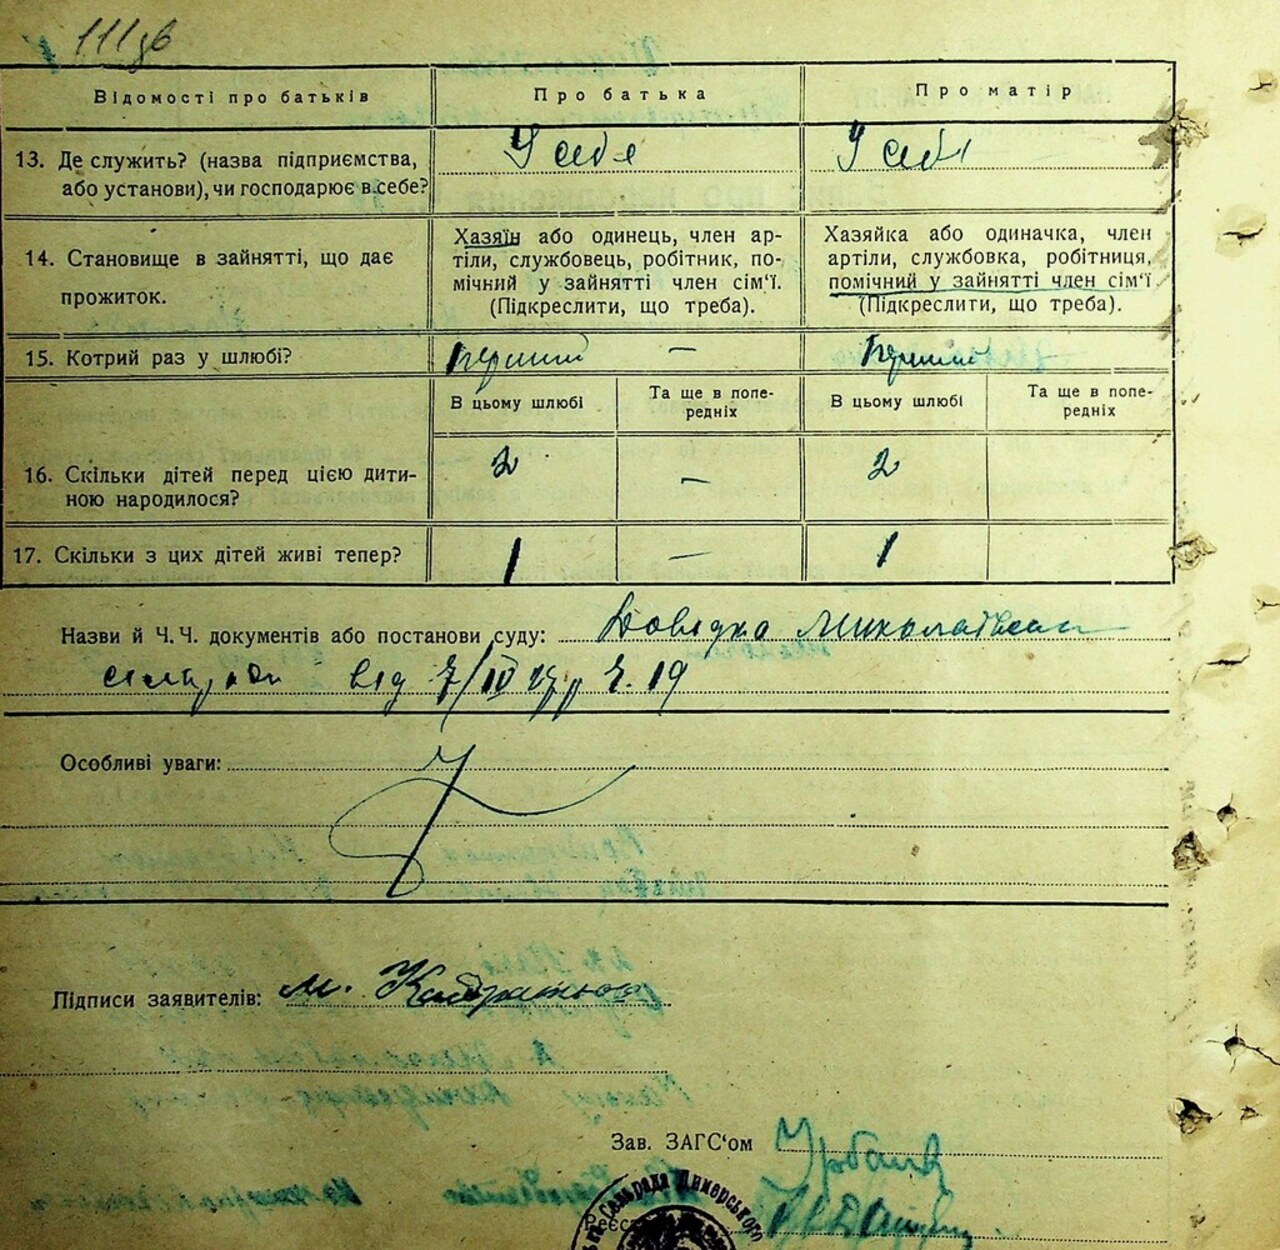 111 зв
Відомості про батьків
Про батька
Про матір
13. Де служить? (назва підприємства,
або установи), чи господарює в себе?
У себе
У себе
14. Становище в зайнятті, що дає
прожиток.
Хазяїн або одинець, член ар-
тіли, службовець, робітник, по-
мічний у зайнятті член сім'ї.
(Підкреслити, що треба).
Хазяйка або одиначка, член
артіли, службовка, робітниця,
помічний у зайнятті член сім'ї
(Підкреслити, що треба).
15. Котрий раз у шлюбі?
Перший —
Перший
В цьому шлюбі
Та ще в попе-
редніх
В цьому шлюбі
Та ще в попе-
редніх
16. Скільки дітей перед цією дити-
ною народилося?
2 — 2
17. Скільки з цих дітей живі тепер?
1 — 1
Назви й Ч. Ч. документів або постанови суду: Довідка Миколаївськ
сільради від 7/IV Ч. 19
Особливі уваги:
Підписи заявителів: М.
Зав. ЗАГС'ом
Сельрада Димерського